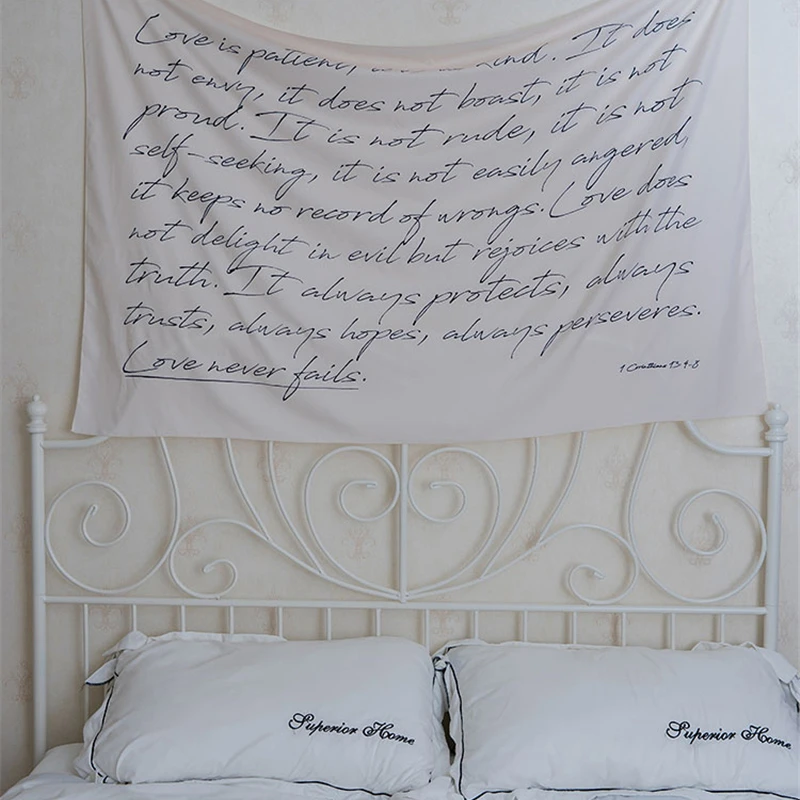 Love is patient, kind. It does
not envy, it does not boast, it is not
proud. It is not rude, it is not
self-seeking, it is not easily angered,
it keeps no record of wrongs. Love does
not delight in evil but rejoices with the
truth. It always protects, always
trusts, always hopes, always perseveres.
Love never fails.
1 Corinthians 13:4-8
Superior Home
Superior Home